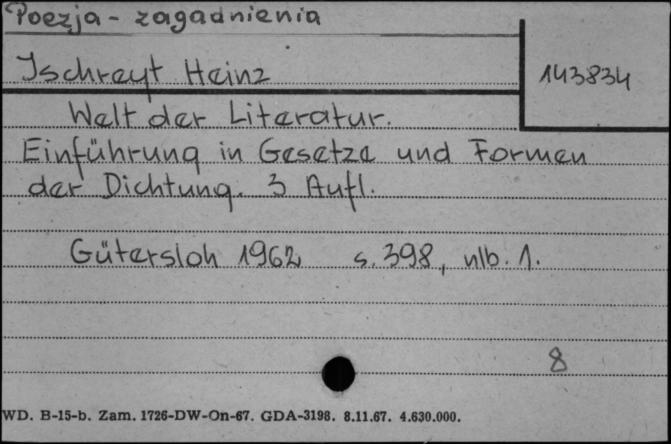 Poezja - zagadnienia
Ischreyt Heinz
143834
Welt der Literatur.
Einführung in Gesetze und Formen
der Dichtung. 3 Aufl.
Gütersloh 1962 s. 398, nlb. 1.
8
WD. B-15-b. Zam. 1726-DW-On-67. GDA-3198. 8.11.67. 4.630.000.